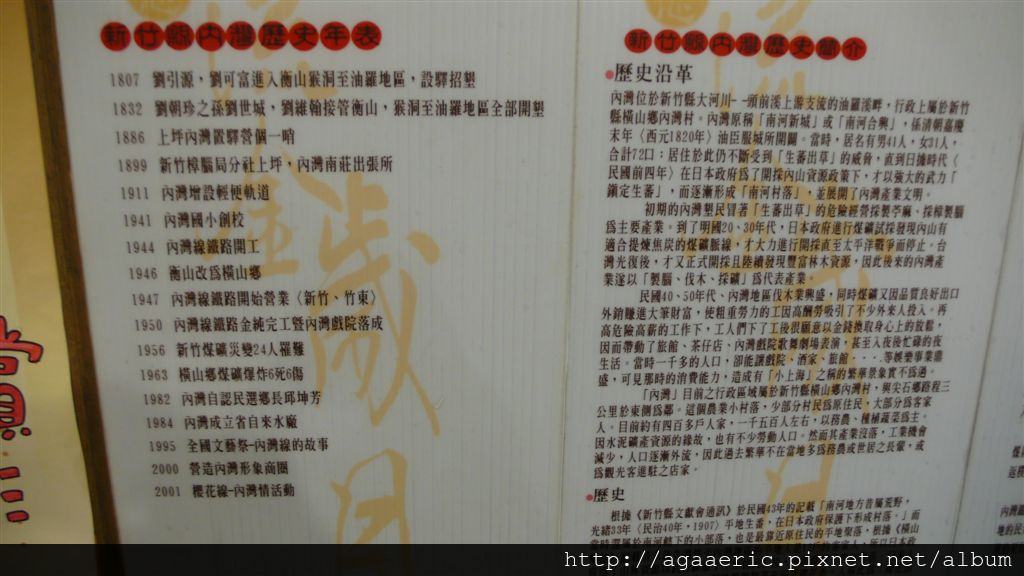 新竹縣內灣歷史年表
1807 劉引源，劉可富進入衡山猴洞至油羅地區，設驛招墾
1832 劉朝珍之孫劉世城，劉維翰接管衡山，猴洞至油羅地區全部開墾
1886 上坪內灣置驛營個一哨
1899 新竹樟腦局分社上坪，內灣南莊出張所
1911 內灣增設輕便軌道
1941 內灣國小創校
1944 內灣線鐵路開工
1946 衡山改為橫山鄉
1947 內灣線鐵路開始營業〈新竹、竹東〉
1950 內灣線鐵路全純完工暨內灣戲院落成
1956 新竹煤礦災變24人罹難
1963 橫山鄉煤礦爆炸6死6傷
1982 內灣自認民選鄉長邱坤芳
1984 內灣成立省自來水廠
1995 全國文藝祭-內灣線的故事
2000 營造內灣形象商圈
2001 櫻花線-內灣情活動
新竹縣內灣歷史簡介
歷史沿革
內灣位於新竹縣大河川--頭前溪上游支流的油羅溪畔，行政上屬於新竹
縣橫山鄉內灣村。內灣原稱「南河新城」或「南河合興」，係清朝嘉慶
末年〈西元1820年〉油臣服城所開闢。當時，居名有男41人，女31人，
合計72口；居住於此仍不斷受到「生蕃出草」的威脅，直到日據時代〈
民國前四年〉在日本政府為了開採內山資源政策下，才以強大的武力「
鎮定生蕃」，而逐漸形成「南河村落」，並展開了內灣產業文明。
初期的內灣墾民冒著「生蕃出草」的危險經營採製苧麻、採樟製腦
為主要產業。到了明國20、30年代，日本政府進行煤礦試採發現內山有
適合提煉焦炭的煤礦脈線，才大力進行開採直至太平洋戰爭而停止。台
灣光復後，才又正式開採且陸續發現豐富林木資源，因此後來的內灣產
業遂以「製腦、伐木、採礦」為代表產業。
民國40、50年代、內灣地區伐木業興盛，同時煤礦又因品質良好出口
外銷賺進大筆財富，使粗重勞力的工因高酬勞吸引了不少外來人投入。再
高危險高薪的工作下，工人們下了工後很願意以金錢換取身心上的放鬆，
因而帶動了旅館、茶仔店、內灣戲院歌舞劇場表演，甚至入夜後忙碌的夜
生活。當時一千多的人口，卻能讓戲院、酒家、旅館‧‧‧‧等娛樂事業鼎
盛，可見那時的消費能力，造成有「小上海」之稱的繁華景象實不為過。
「內灣」目前之行政區域屬於新竹縣橫山鄉內灣村，與尖石鄉路程三
公里於東側為鄰。這個農業小村落，少部分村民為原住民，大部分為客家
人。目前約有四百多戶人家，一千五百人左右，以務農、種植蔬菜為主。
因水泥礦產資源的緣故，也有不少勞動人口。然而其產業沒落，工業機會
減少，人口逐漸外流，因此過去繁華不在當地多為務農或世居之長輩，或
為觀光客進駐之店家。
歷史
根據《新竹縣文獻會通訊》於民國43年的記載「南河地方昔屬荒野，
光緒33年〈民治40年，1907〉平地生番，在日本政府保護下形成村落。」而
http://agaaeric.pixnet.net/album